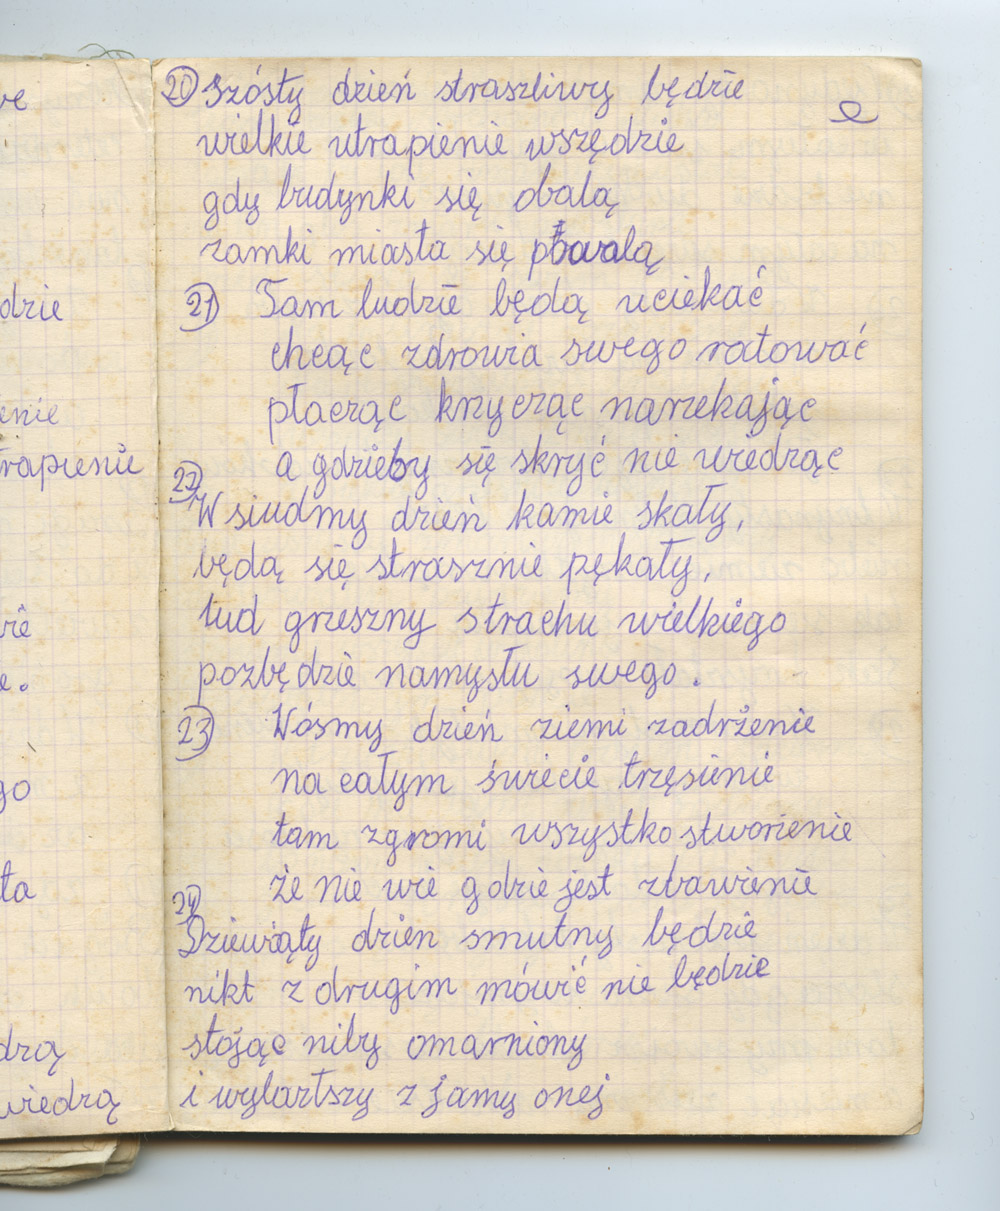 ve
dzie
enie
trapienie
vie
e.
go
ta
drą
wiedzą
20 Szósty dzień straszliwy będzie
wielkie utrapienie wszędzie
gdy budynki się obalą
zamki miasta się powalą
21 Tam ludzie będą uciekać
chcąc zdrowia swego ratować
płacząc krzycząc narzekając
a gdzieby się skryć nie wiedząc
22
W siudmy dzień kamie skały,
będą się strasznie pękały,
lud grzeszny strachu wielkiego
pozbędzie namysłu swego.
23 Wósmy dzień ziemi zadrżenie
na całym świecie trzęsienie
tam zgromi wszystko stworzenie
że nie wie gdzie jest zbawienie
24
Dziewiąty dzien smutny będzie
nikt z drugim mówić nie będzie
stojąc niby omarniony
i wylartszy z jamy onej